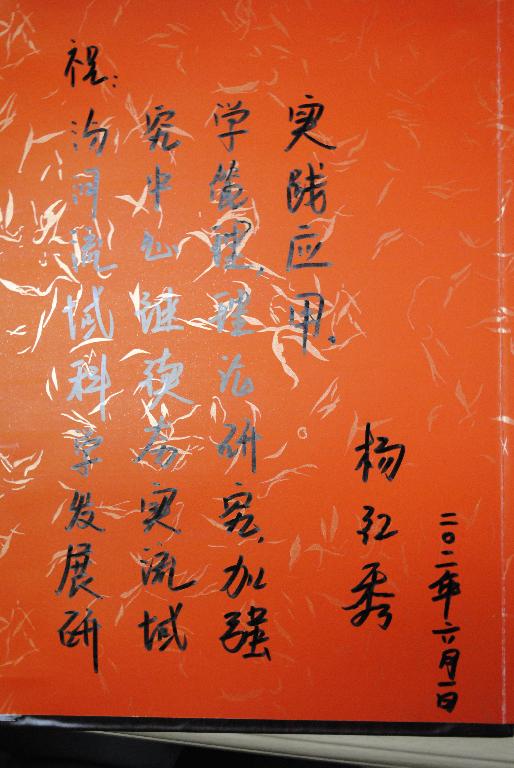 祝:
汾河流域科学发展研
究中心继续夯实流域
学管理,理论研究,加强
实践应用.
杨红秀
二〇二一年六月一日